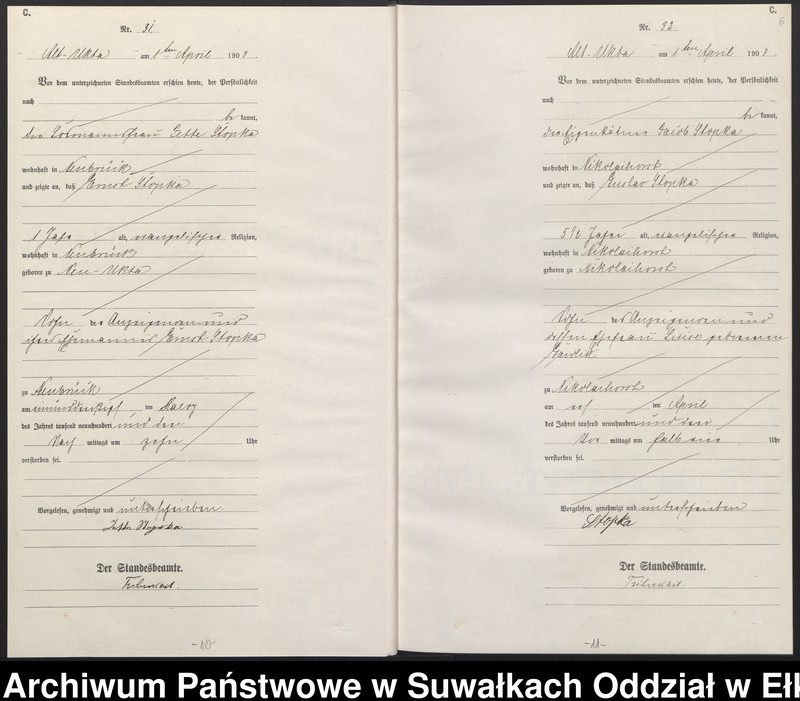 C.
Nr. 31
Alt-Ukta am 1ten April 1903.
Vor dem unterzeichneten Standesbeamten erschien heute, der Persönlichkeit
nach
be kannt,
die Losmannsfrau Jette Stopka
wohnhaft in Neubrück
und zeigte an, daß Ernst Stopka
1 Jahr alt, evangelischer Religion,
wohnhaft in Neubrück
geboren zu Neu-Ukta
Sohn der Anzeigenden und
ihres Ehemannes Ernst Stopka
zu Neubrück
am einunddreißigsten ten Maerz
des Jahres tausend neunhundert und drei
Nach mittags um zehn Uhr
verstorben sei.
Vorgelesen, genehmigt und unterschrieben.
Jette Stopka
Der Standesbeamte.
-10-
C.
6
Nr. 32
Alt-Ukta am 1ten April 1903.
Vor dem unterzeichneten Standesbeamten erschien heute, der Persönlichkeit
nach
be kannt,
der Eigenkätner Jacob Stopka
wohnhaft in Nikolaihorst
und zeigte an, daß Gustav Stopka
5 1/2 Jahre alt, evangelischer Religion,
wohnhaft in Nikolaihorst
geboren zu Nikolaihorst
Sohn des Anzeigenden und
dessen Ehefrau Luise geborenen
zu Nikolaihorst
am ten April
des Jahres tausend neunhundert und drei
Vor mittags um halb eins Uhr
verstorben sei.
Vorgelesen, genehmigt und unterschrieben
Stopka
Der Standesbeamte.
-11-
Archiwum Państwowe w Suwałkach Oddział w Ełk